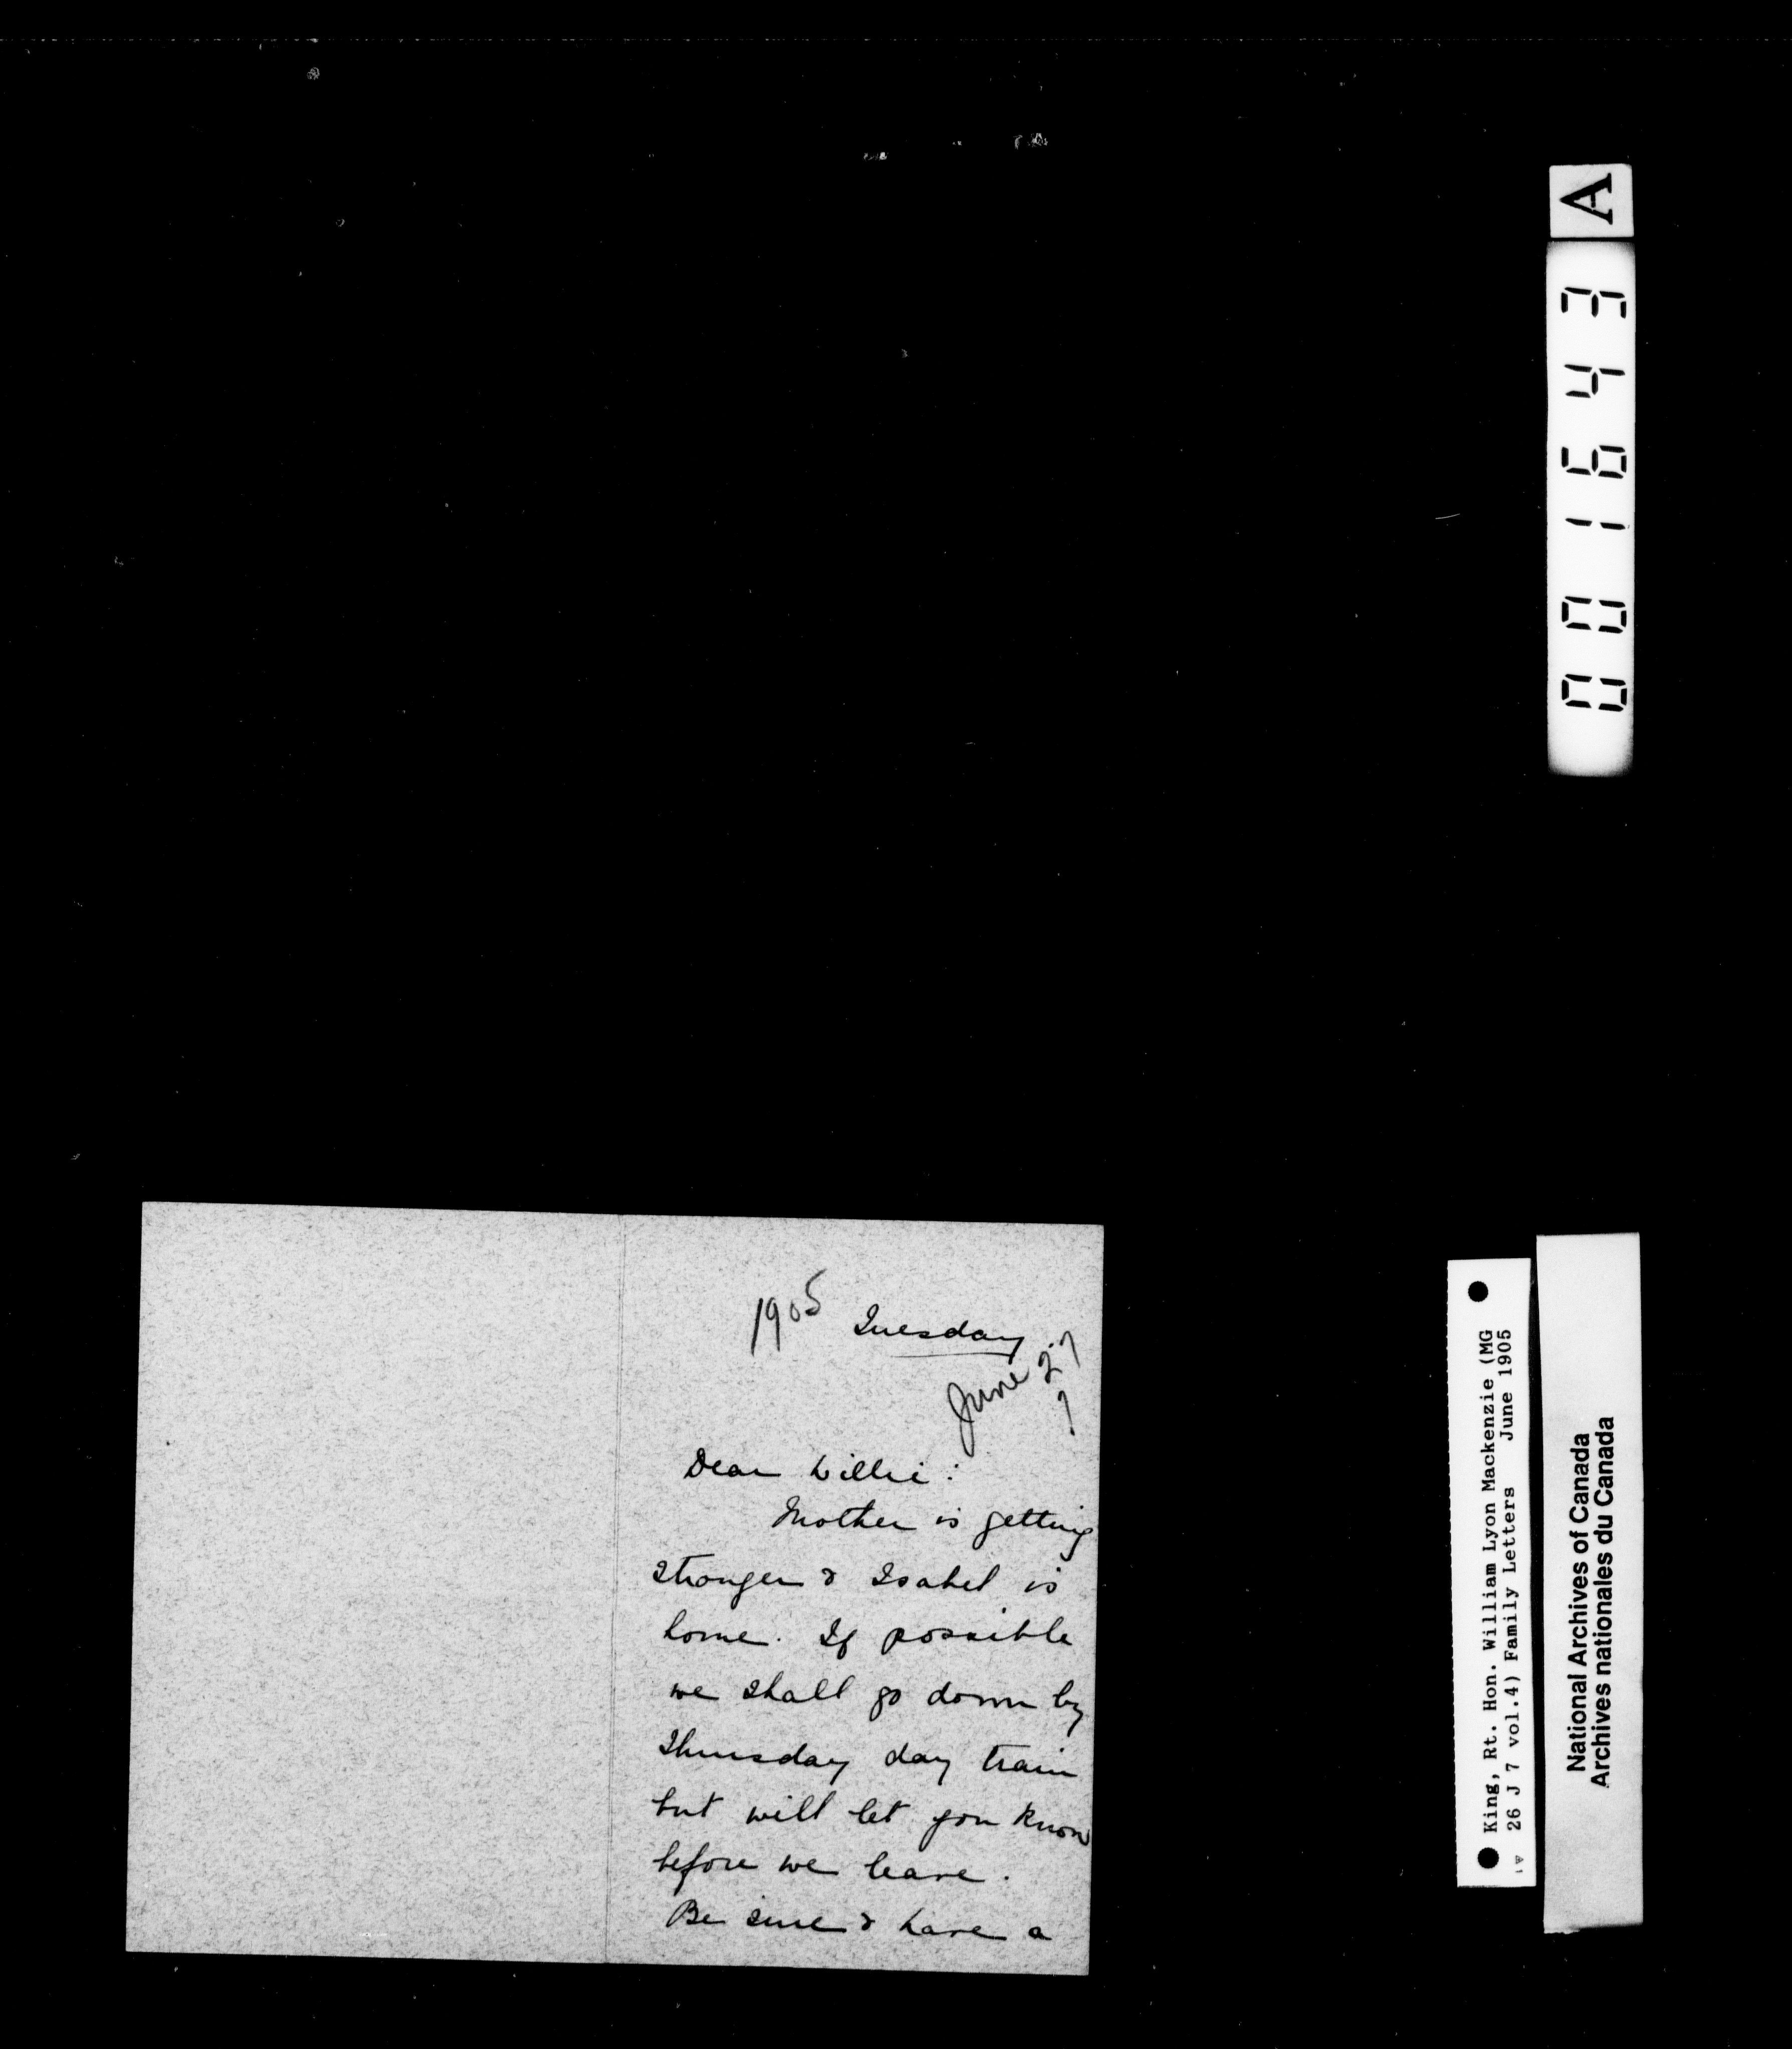 A
001643
1905 Tuesday
June 27
?
Dear Willie:
Mother is getting
stronger & Isabel is
home. If possible
we shall go down by
Thursday day train
but will let you know
before we leave.
Be sure & have a
King, Rt. Hon. William Lyon Mackenzie (MG
26 J 7 vol.4) Family Letters June 1905
National Archives of Canada
Archives nationales du Canada